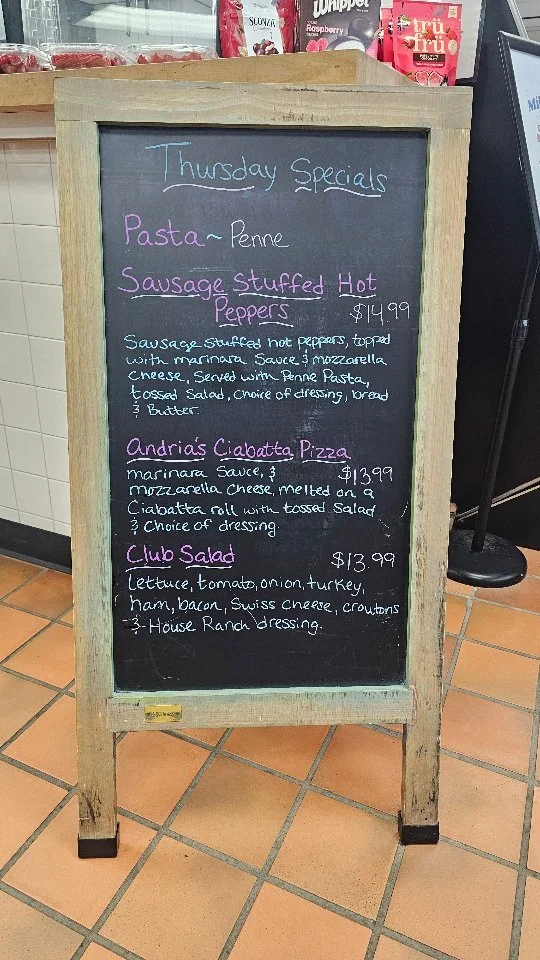 Whipper
Raspberry
trü
frü
Thursday Specials
Pasta ~ Penne
Sausage Stuffed Hot
Peppers
$14.99
Sausage stuffed hot peppers, topped
with marinara Sauce & mozzarella
cheese, Served with Penne Pasta,
tossed Salad, choice of dressing, bread
& Butter.
Andria's Ciabatta Pizza
marinara Sauce, & $13.99
mozzarella cheese, melted on a
Ciabatta roll with tossed Salad
& choice of dressing.
Club Salad $13.99
Lettuce, tomato, onion, turkey,
ham, bacon, Swiss cheese, croutons
& House Ranch dressing.